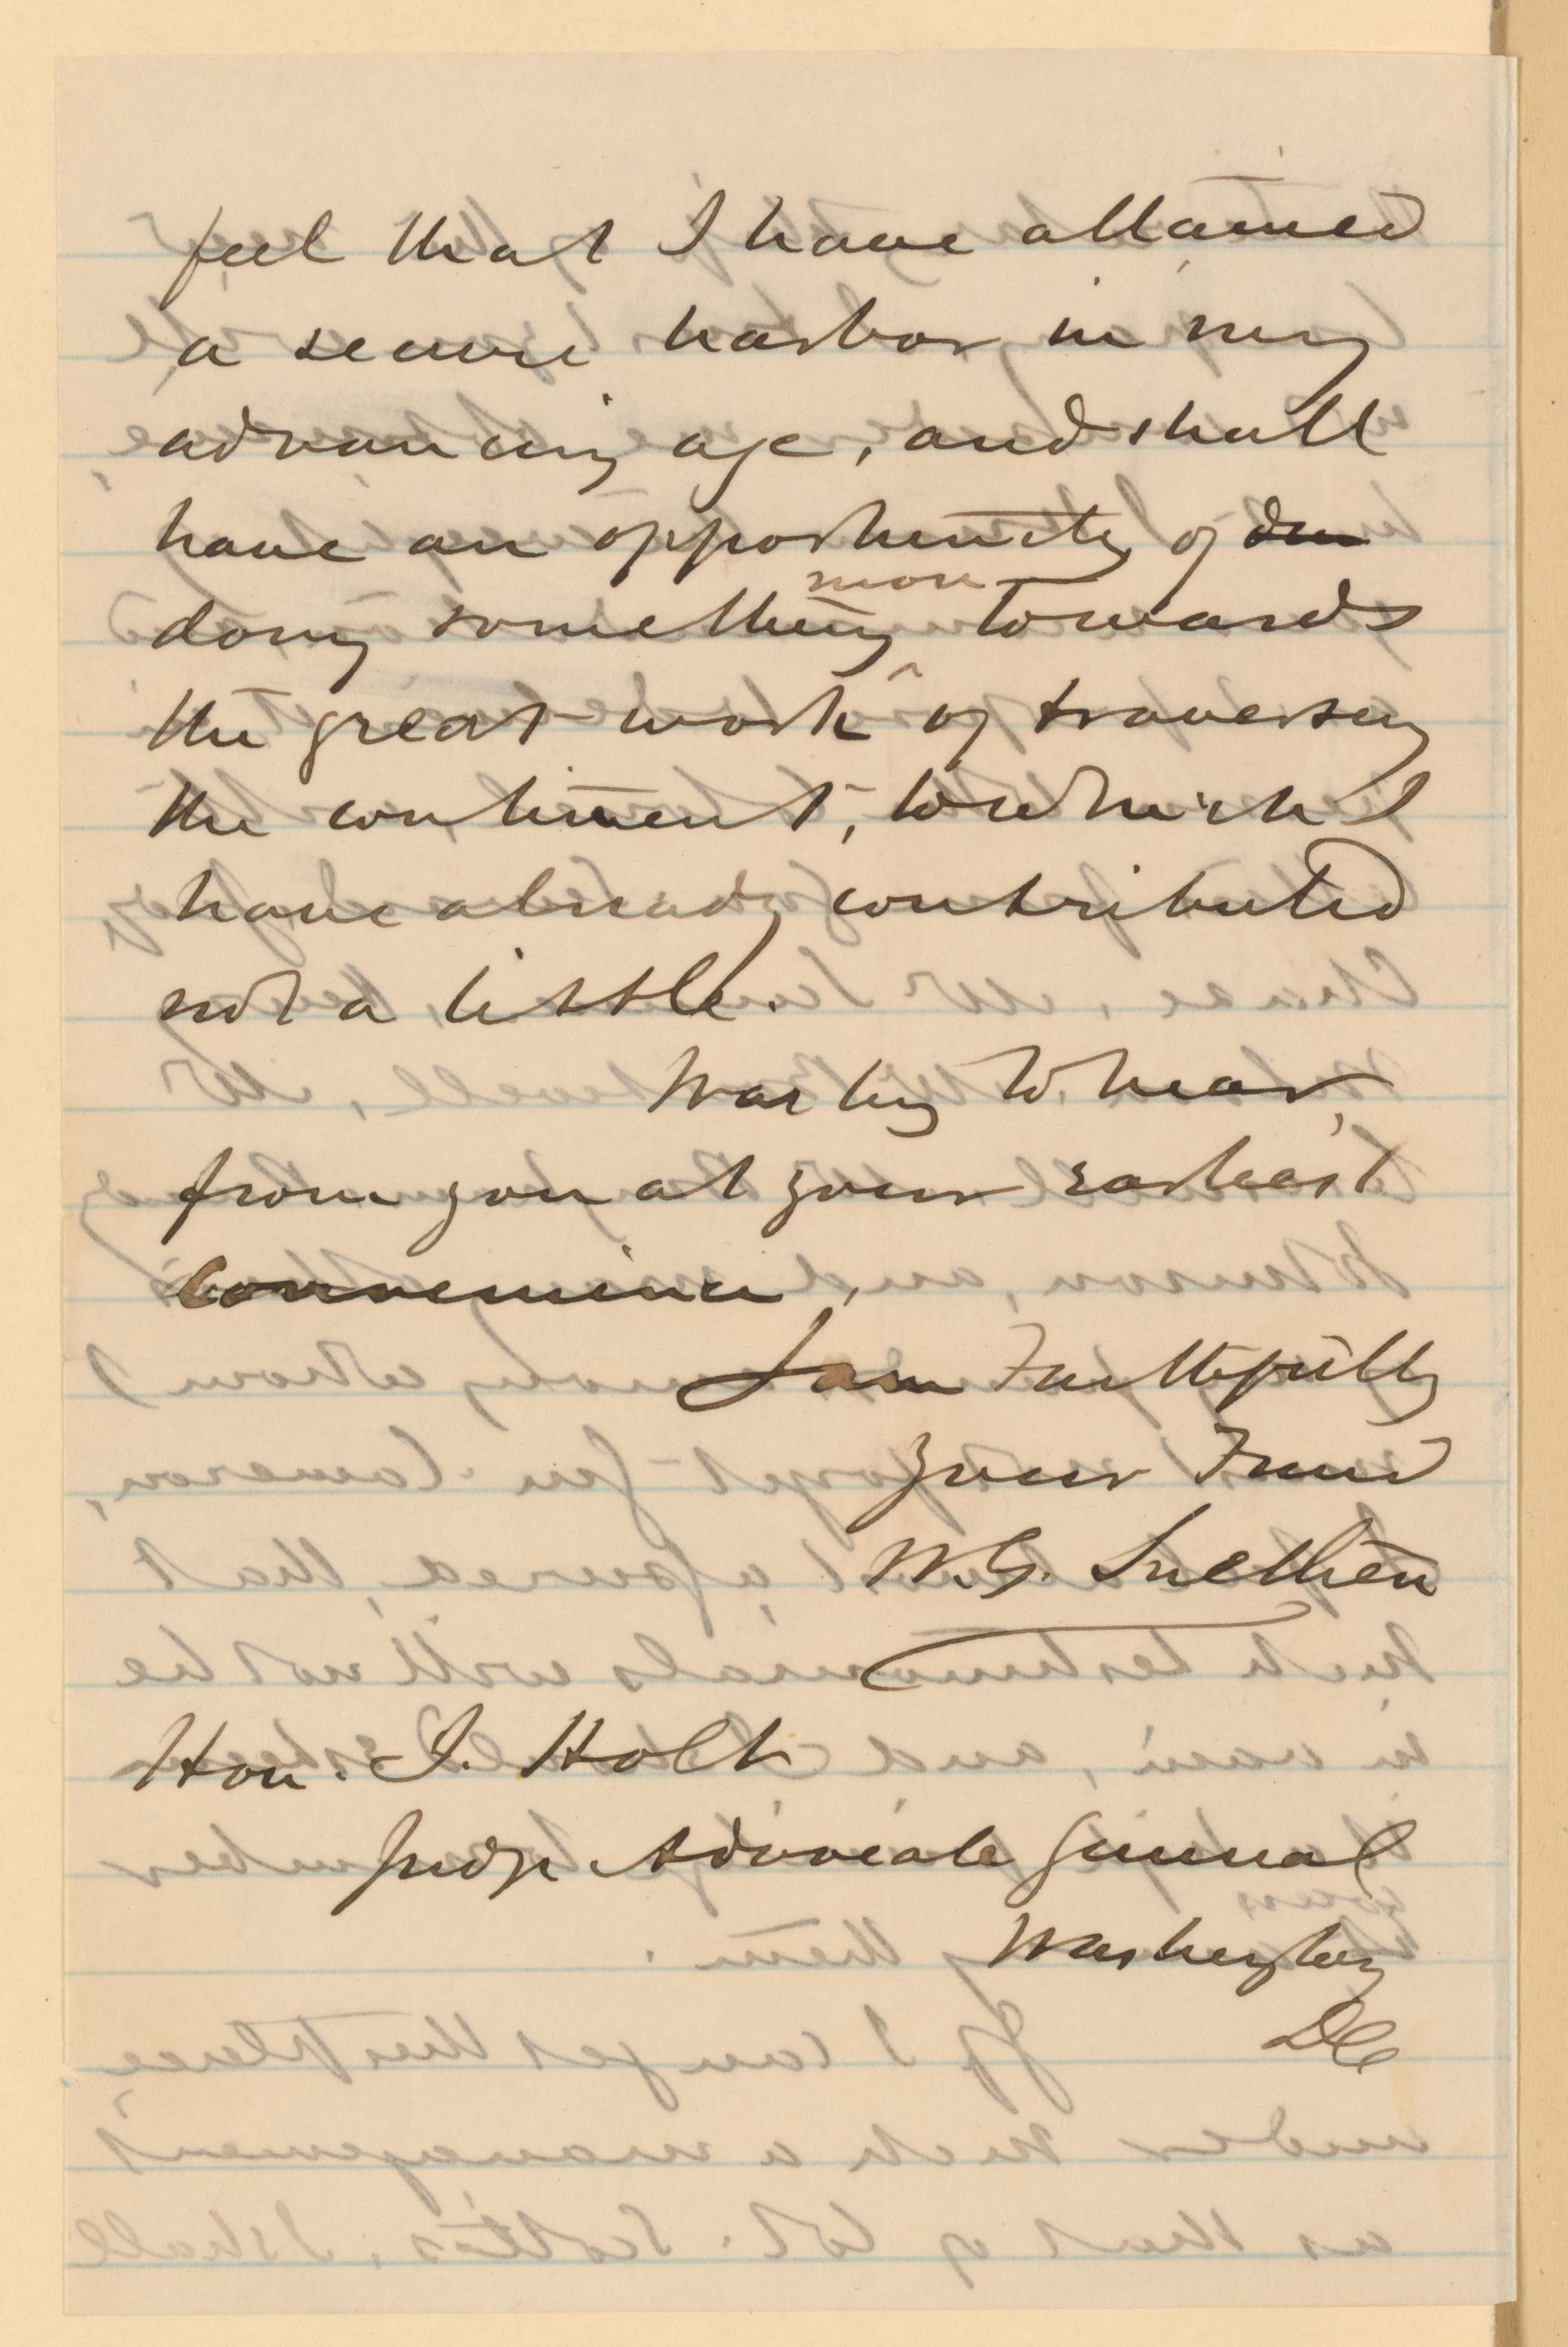 feel that I have attained
a secure harbor in my
advancing age, and shall
have an opportunity of
doing something more towards
the great work of traversing
the continent, to which I
have already contributed
not a little.
to hear
from you at your earliest
convenience,
I am Faithfully
Your Friend
W.G. Snethen
Hon. J. Holt
Judge Advocate General
Washington
DC